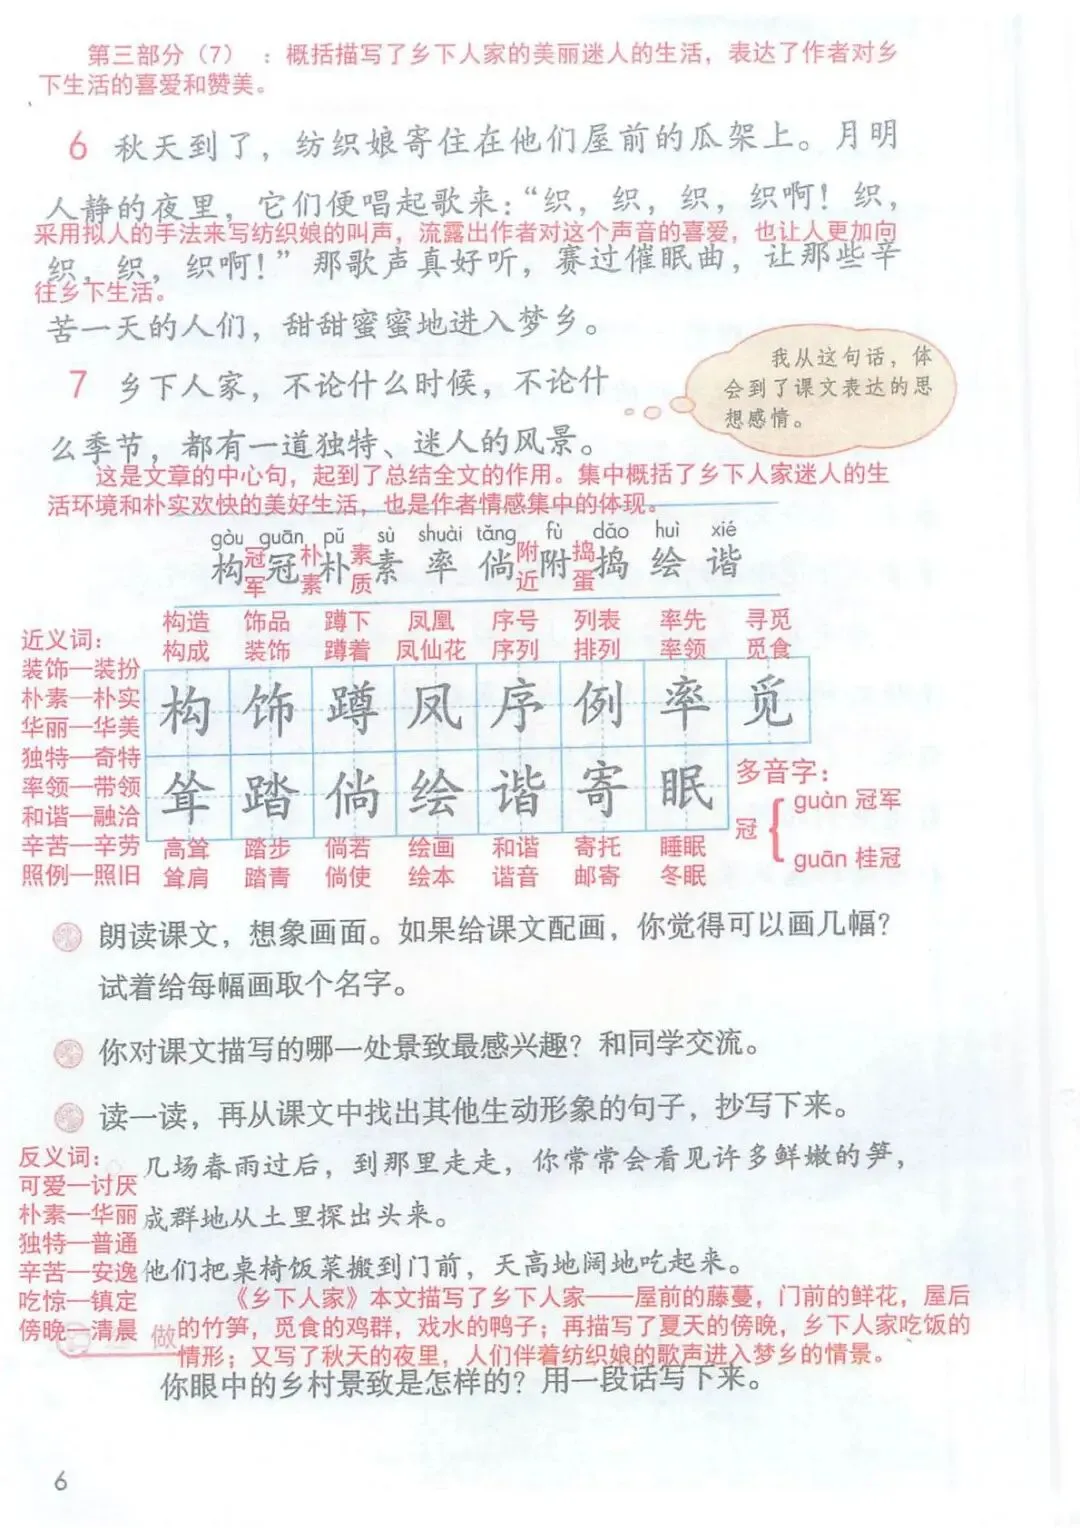 第三部分（7）：概括描写了乡下人家的美丽迷人的生活，表达了作者对乡
下生活的喜爱和赞美。
6 秋天到了，纺织娘寄住在他们屋前的瓜架上。月明
人静的夜里，它们便唱起歌来：“织，织，织，织啊！织，
采用拟人的手法来写纺织娘的叫声，流露出作者对这个声音的喜爱，也让人更加向
织，织，织啊！”那歌声真好听，赛过催眠曲，让那些辛
往乡下生活。
苦一天的人们，甜甜蜜蜜地进入梦乡。
我从这句话，体
会到了课文表达的思
想感情。
7 乡下人家，不论什么时候，不论什
么季节，都有一道独特、迷人的风景。
这是文章的中心句，起到了总结全文的作用。集中概括了乡下人家迷人的生
活环境和朴实欢快的美好生活，也是作者情感集中的体现。
gòu guān pǔ sù shuài tǎng fù dǎo huì xié
构 冠 朴 素 率 倘 附 捣 绘 谐
冠军 朴素 素质 附近 捣蛋
构造 饰品 蹲下 凤凰 序号 列表 率先 寻觅
构成 装饰 蹲着 凤仙花 序列 排列 率领 觅食
构 饰 蹲 凤 序 例 率 觅
耸 踏 倘 绘 谐 寄 眠
高耸 踏步 倘若 绘画 和谐 寄托 睡眠
耸肩 踏青 倘使 绘本 谐音 邮寄 冬眠
近义词：
装饰—装扮
朴素—朴实
华丽—华美
独特—奇特
率领—带领
和谐—融洽
辛苦—辛劳
照例—照旧
多音字：
冠
guàn 冠军
guān 桂冠
朗读课文，想象画面。如果给课文配画，你觉得可以画几幅？
试着给每幅画取个名字。
你对课文描写的哪一处景致最感兴趣？和同学交流。
读一读，再从课文中找出其他生动形象的句子，抄写下来。
几场春雨过后，到那里走走，你常常会看见许多鲜嫩的笋，
成群地从土里探出头来。
他们把桌椅饭菜搬到门前，天高地阔地吃起来。
反义词：
可爱—讨厌
朴素—华丽
独特—普通
辛苦—安逸
吃惊—镇定
傍晚—清晨
《乡下人家》本文描写了乡下人家——屋前的藤蔓，门前的鲜花，屋后
的竹笋，觅食的鸡群，戏水的鸭子；再描写了夏天的傍晚，乡下人家吃饭的
情形；又写了秋天的夜里，人们伴着纺织娘的歌声进入梦乡的情景。
做
你眼中的乡村景致是怎样的？用一段话写下来。
6